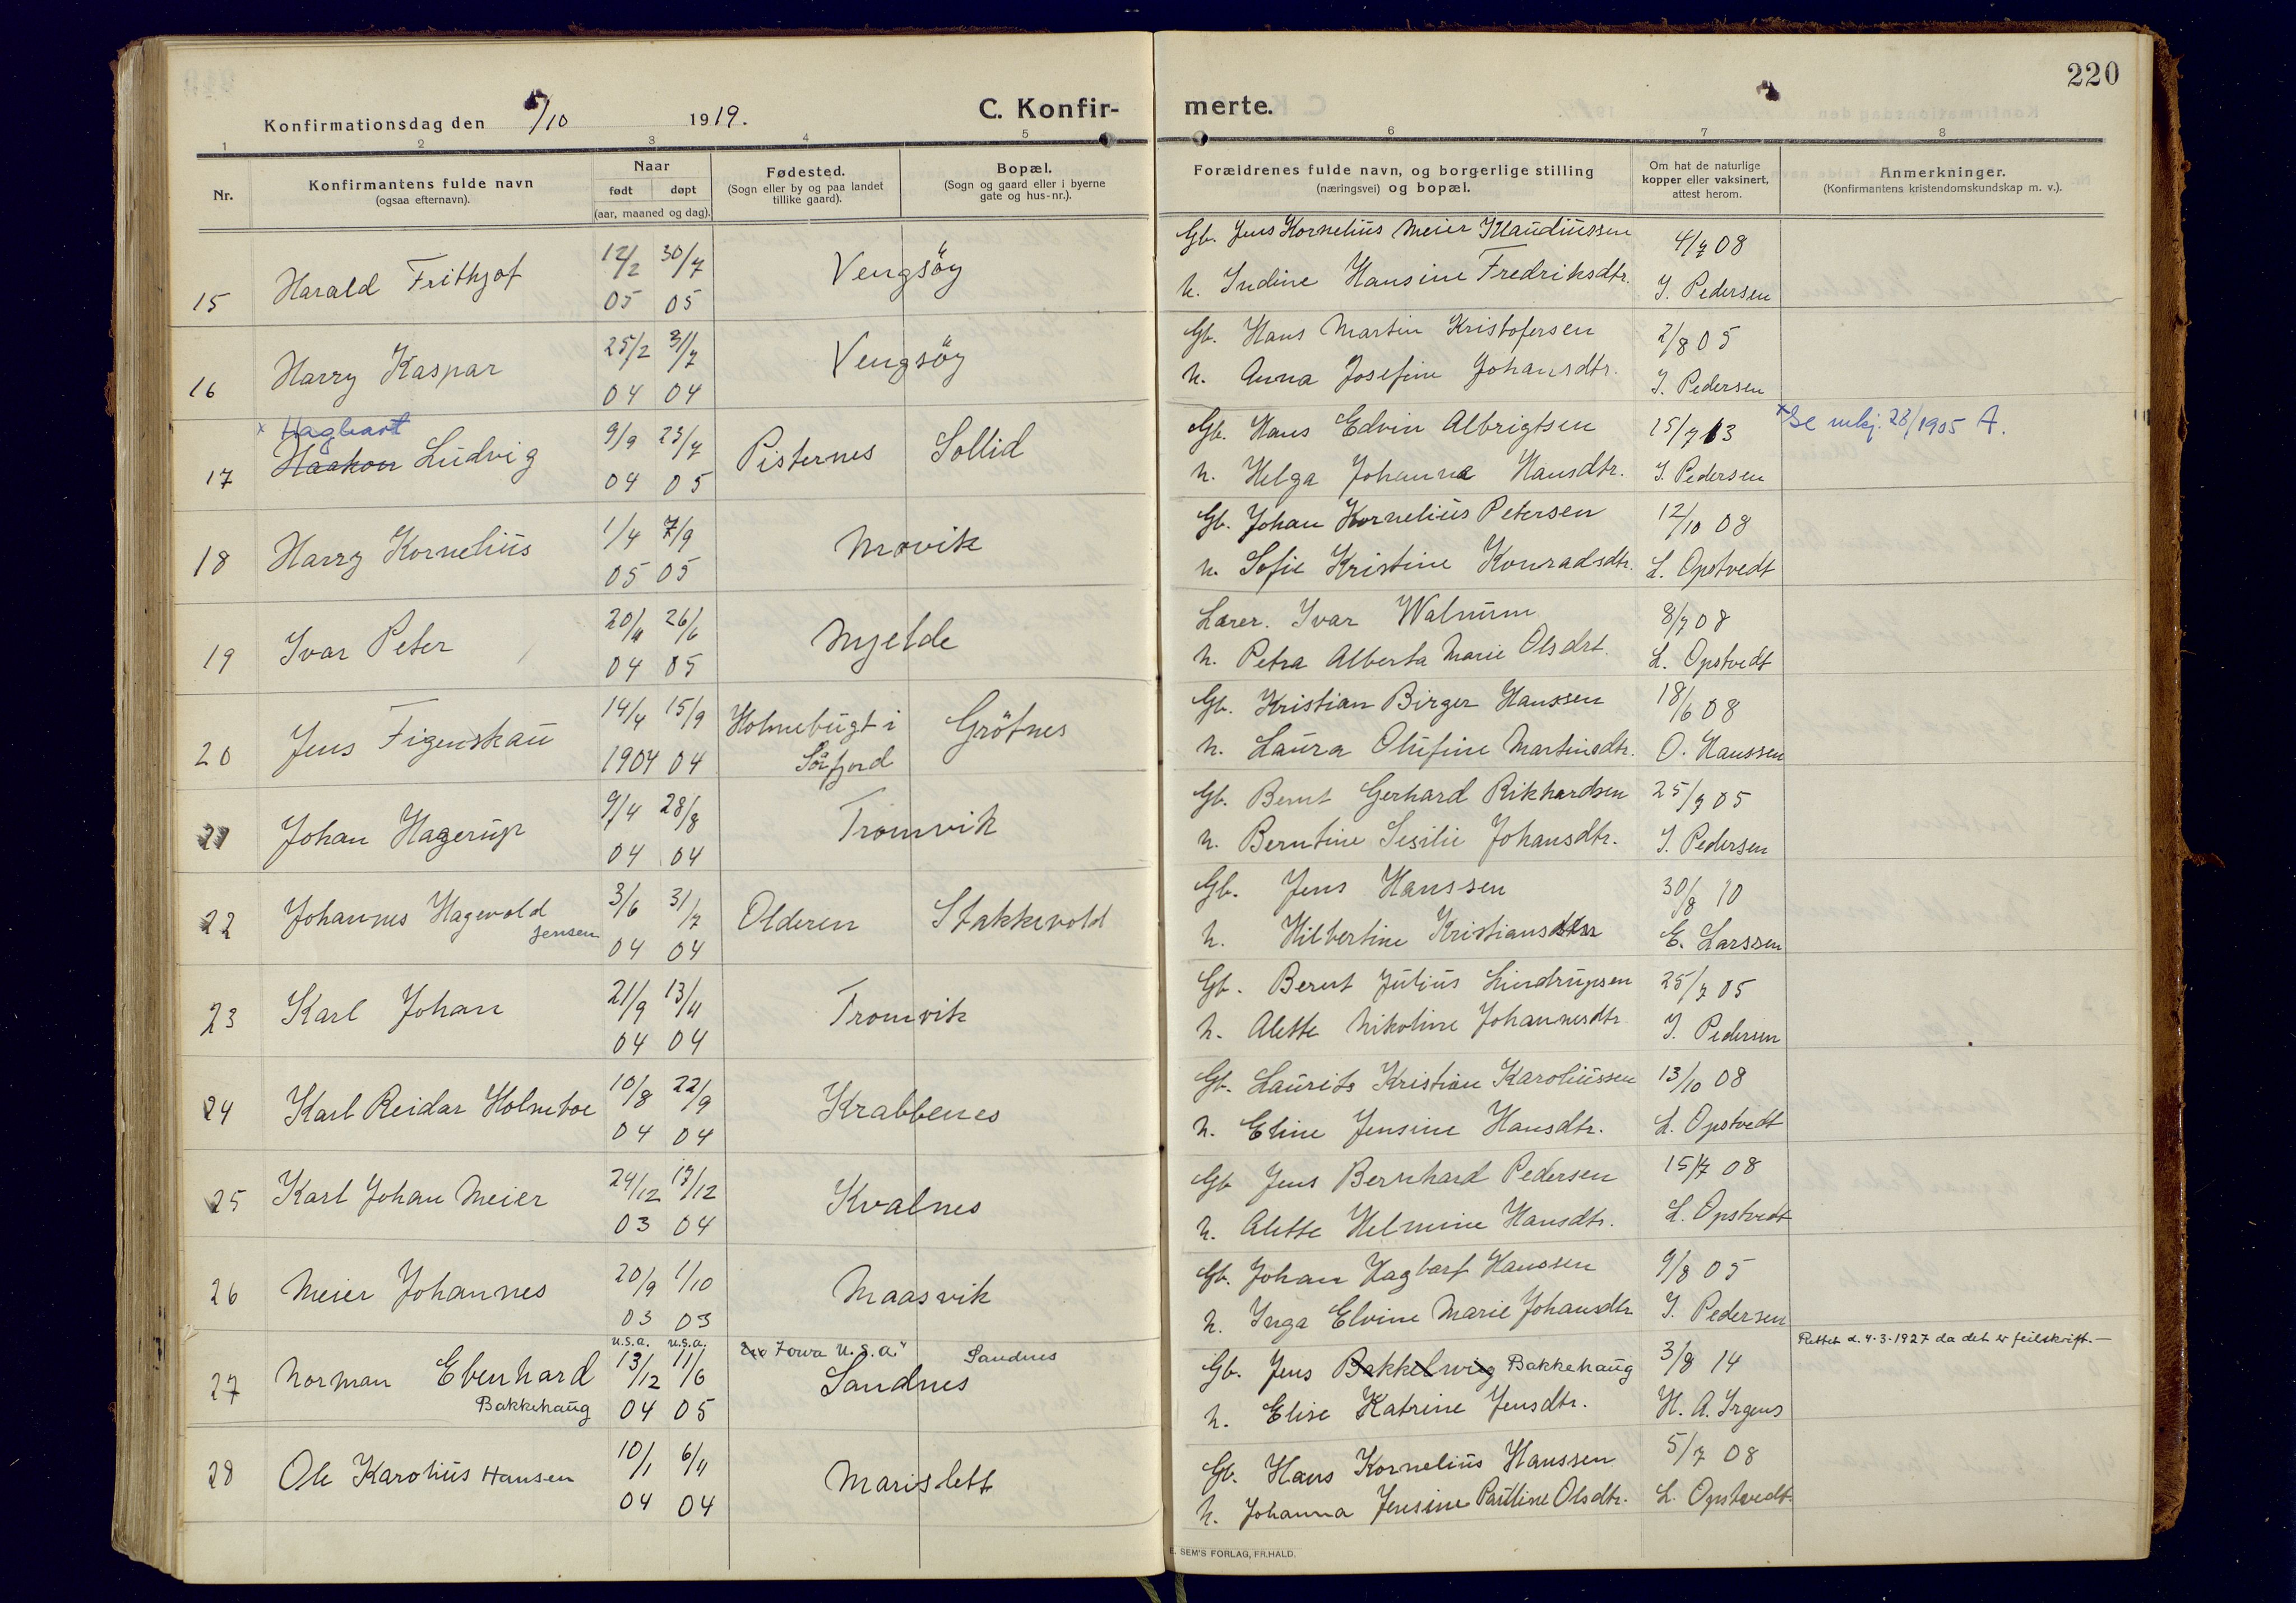 220
Konfirmationsdag den 5/10 1919.
C. Konfir-
merte.
1 2 3 4 5 6 7 8
Nr.
Konfirmantens fulde navn
(ogsaa efternavn).
Naar
født døpt
(aar, maaned og dag).
Fødested.
(Sogn eller by og paa landet
tillike gaard).
Bopæl.
(Sogn og gaard eller i byerne
gate og hus-nr.).
Forældrenes fulde navn, og borgerlige stilling
(næringsvei) og bopæl.
Om hat de naturlige
kopper eller vaksinert,
attest herom.
Anmerkninger.
(Konfirmantens kristendomskundskap m. v.).
15 Harald Frithjof 12/2 05 30/7 05 Vengsöy
Gb. Jens Kornelius Meier Klaudiussen 4/7 08
h. Indine Hansine Fredriksdtr. I. Pedersen
16 Harry Kaspar 25/2 04 31/7 04 Vengsöy
Gb. Hans Martin Kristofersen 2/8 05
h. Anna Josefine Johansdtr. I. Pedersen
x Hagbart
17 Haakon Ludvig 9/9 04 23/7 05 Pisternes Sollid
Gb. Hans Edvin Albrigtsen 15/7 13 x Se mkj. 28/1905 A.
h. Helga Johanna Hansdtr. I. Pedersen
18 Harry Kornelius 1/4 05 7/9 05 Movik
Gb. Johan Kornelius Petersen 12/10 08
h. Sofie Kristine Konradsdtr. L. Opstvedt
19 Ivar Peter 20/11 04 26/6 05 Mjelde
Lærer. Ivar Walnum 8/7 08
h. Petra Alberta Marie Olsdrt. L. Opstvedt
20 Jens Figenskau 14/4 1904 15/9 04 Holmebugt i Sörfjord Grötnes
Gb. Kristian Birger Hanssen 18/6 08
h. Laura Olufine Martinsdtr. O. Hanssen
21 Johan Hagerup 9/4 04 28/8 04 Tromvik
Gb. Bernt Gerhard Rikhardsen 25/7 05
h. Berntine Sesilie Johansdtr. I. Pedersen
22 Johannes Hagevold Jensen 3/6 04 31/7 04 Olderen Stakkevold
Gb. Jens Hanssen 30/8 10
h. Hilbertine Kristiansdtr E. Larssen
23 Karl Johan 21/9 04 13/11 04 Tromvik
Gb. Bernt Julius Lindrupsen 25/7 05
h. Alette Nikoline Johannesdtr I. Pedersen
24 Karl Reidar Holmboe 10/8 04 22/9 04 Krabbenes
Gb. Laurits Kristian Karoliussen 13/10 08
h. Eline Jensine Hansdtr. L. Opstvedt
25 Karl Johan Meier 24/12 03 13/12 04 Kvalnes
Gb Jens Bernhard Pedersen 15/7 08
h. Alette Helmine Hansdtr. L. Opstvedt
26 Meier Johannes 20/9 03 1/10 03 Maasvik
Gb. Johan Hagbart Hanssen 9/8 05
h. Inga Elvine Marie Johansdtr I. Pedersen
u.s.a. u.s.a. Iowa U.S.a." Sandnes
27 Norman Ebenhard Bakkehaug 13/12 04 11/6 05 Sandnes
Gb. Jens Bakkelwig Bakkehaug 3/8 14 Rettet d. 4-3-1927 da det er feilskrift.—
h. Elise Katrine Jensdtr. H. A. Irgens
28 Ole Karolius Hansen 10/1 04 6/11 04 Marislett
Gb. Hans Kornelius Hanssen 5/7 08
h. Johanna Jensine Pauline Olsdtr. L. Opstvedt
E. SEM'S FORLAG, FR.HALD.